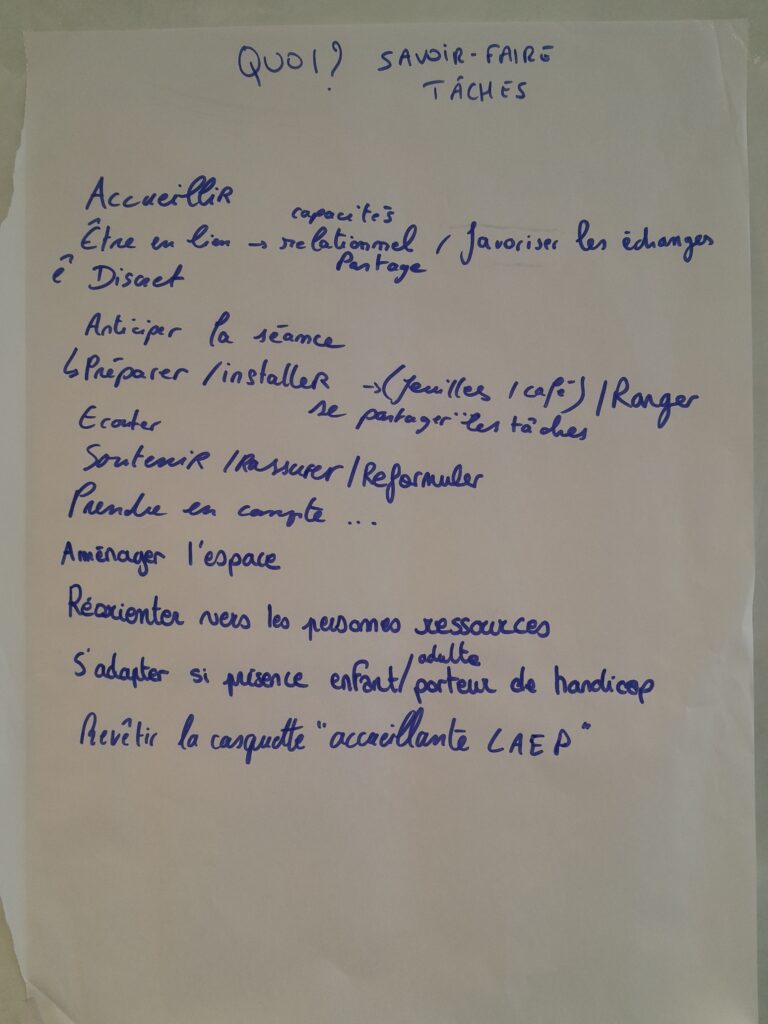 QUOI? SAVOIR-FAIRE
TÂCHES
Accueillir
capacités
Être en lien → relationnel / favoriser les échanges
Partage
ê Discret
Anticiper la séance
↳ Préparer / installer → (feuilles / café) / Ranger
se partager les tâches
Ecouter
Soutenir / Rassurer / Reformuler
Prendre en compte ...
Aménager l'espace
Réorienter vers les personnes ressources
adulte
S'adapter si présence enfant/ porteur de handicap
Revêtir la casquette "accueillante LAEP"